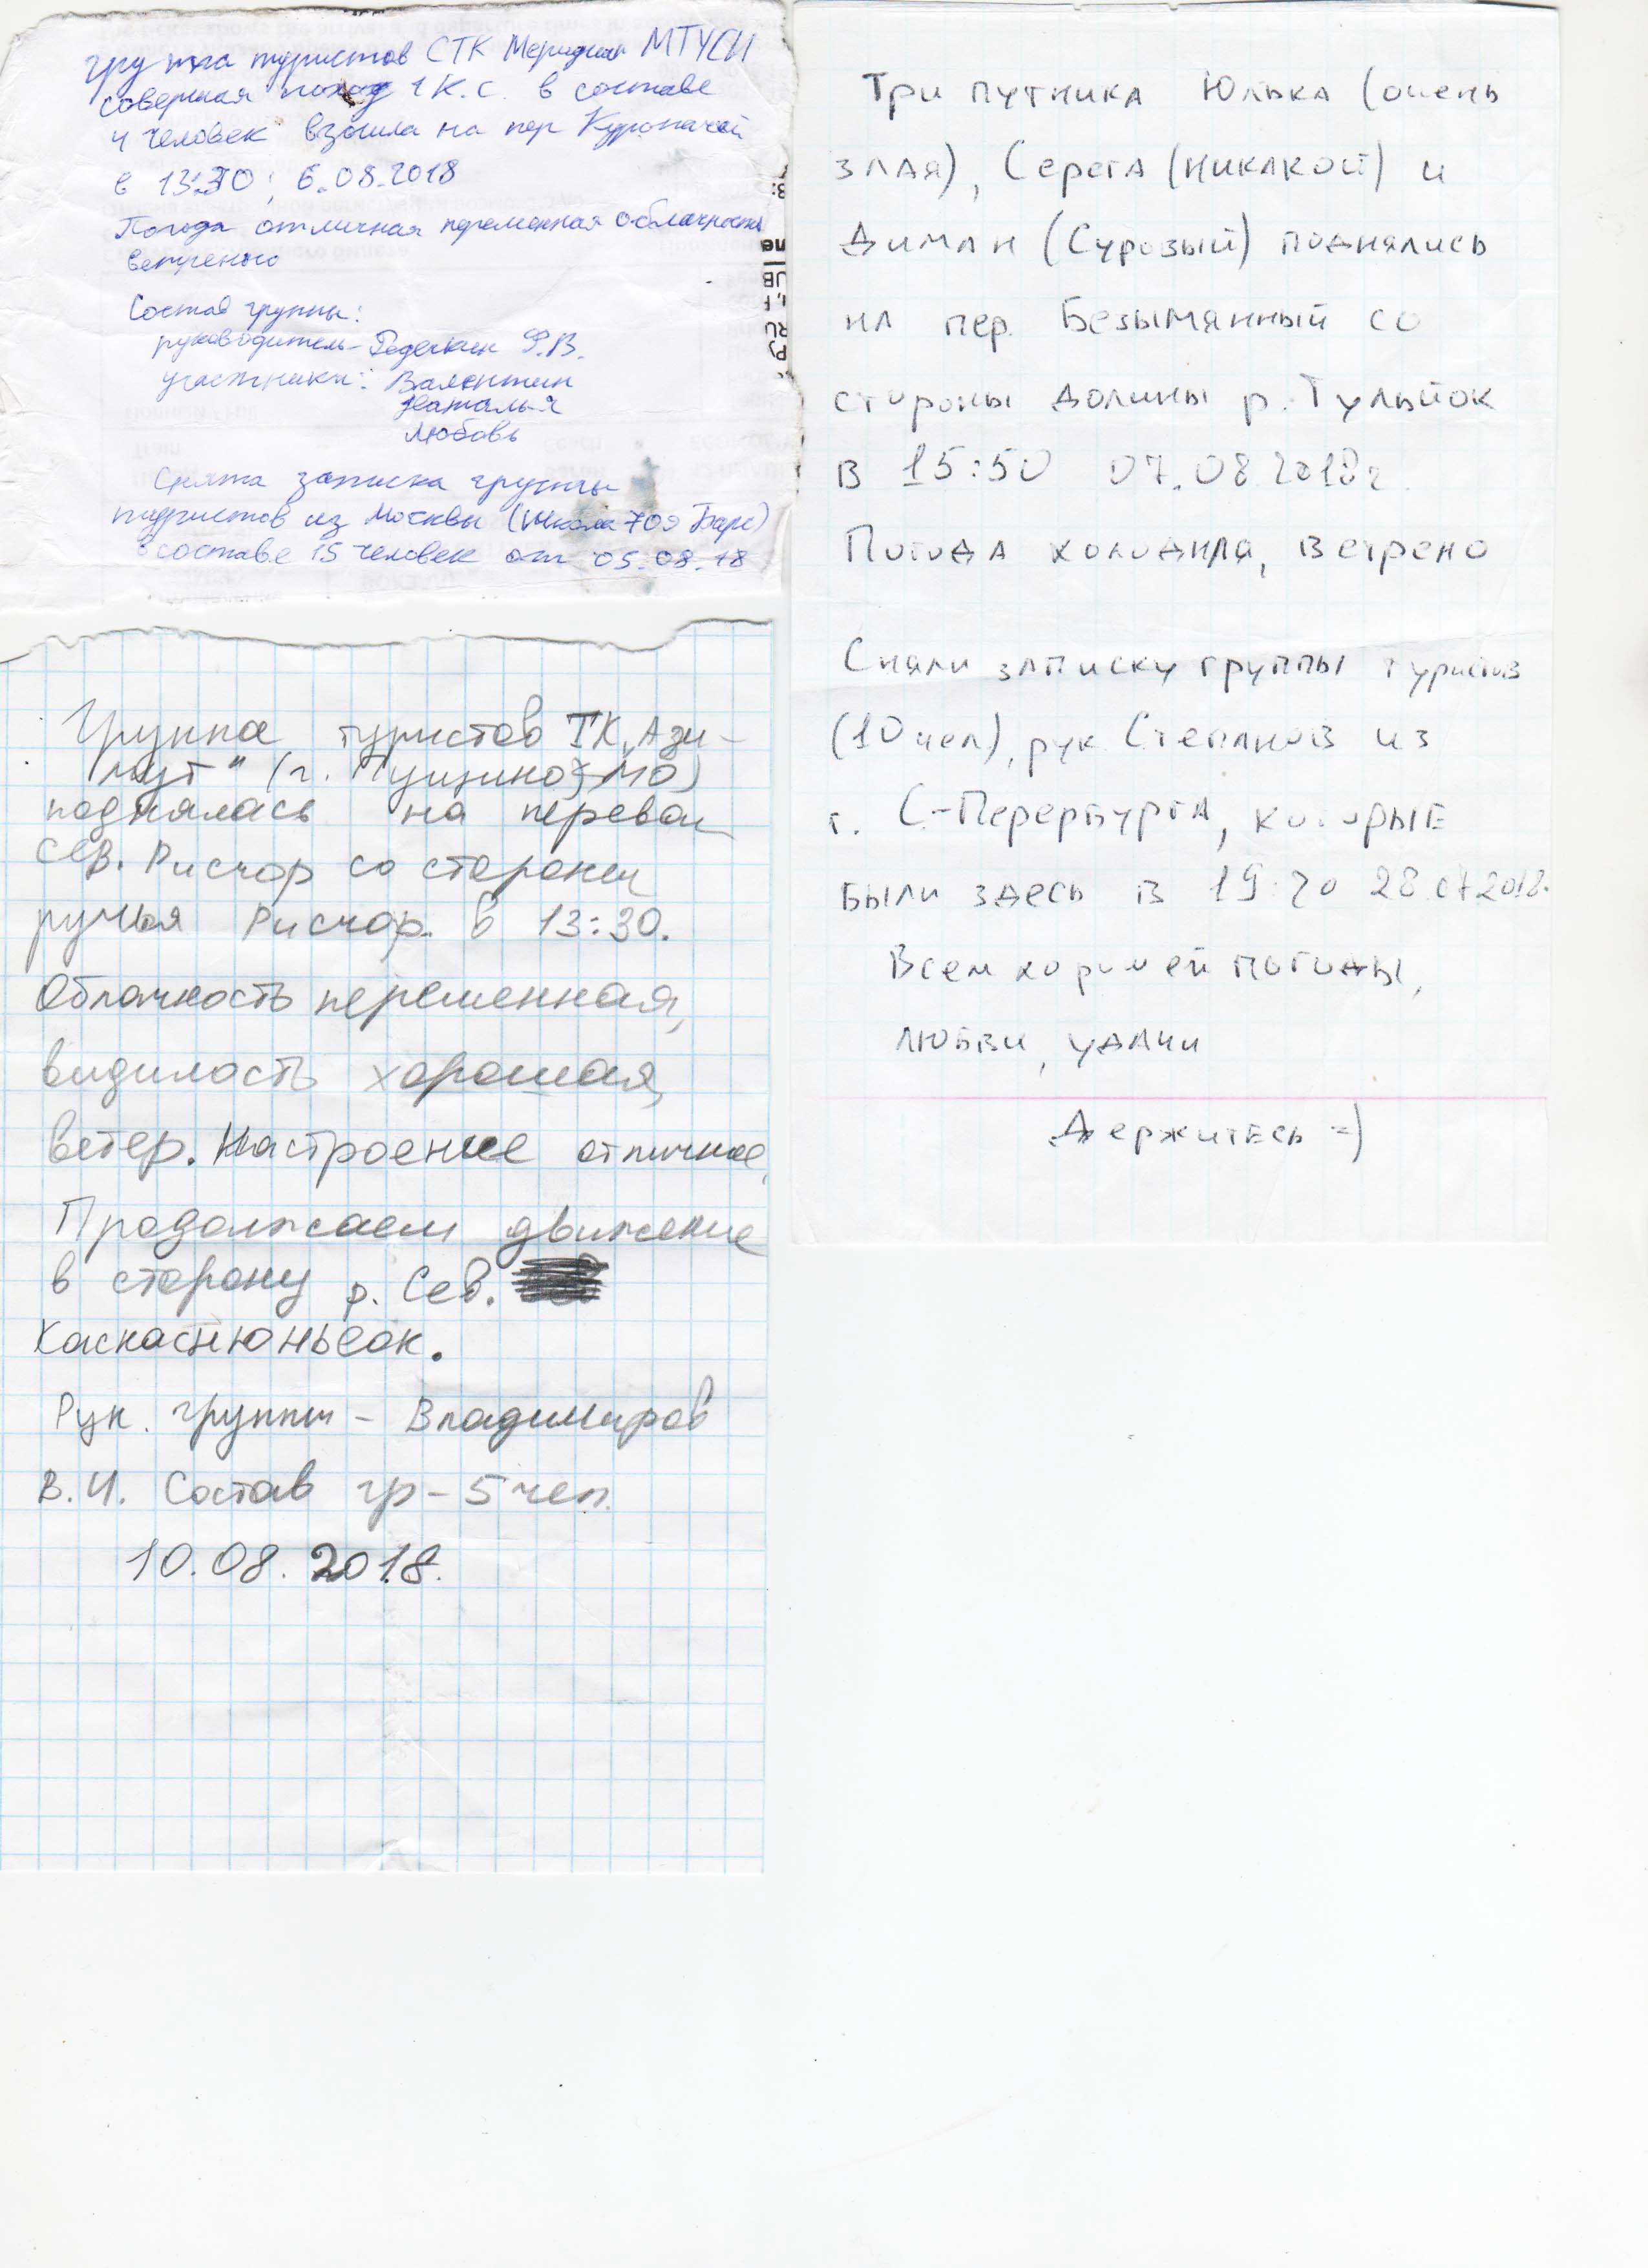 группа туристов СТК Меридиан МТУСИ
совершая поход 1 К.С. в составе
4 человек взошла на пер Куропачий
в 13:30; 6.08.2018
Погода отличная переменная облачность
ветренно
Состав группы:
руководитель - Ф.В.
участники: Валентин
Наталья
Любовь
Снята записка группы
туристов из Москвы (Школа 709 Барс)
в составе 15 человек от 05.08.18
Группа туристов ТК „Ази-
мут" (г. Пущино МО)
поднялась на перевал
Сев. Рисчор со стороны
ручья Рисчор. в 13:30.
Облачность переменная,
видимость хорошая,
ветер. Настроение отличное.
Продолжаем движение
в сторону р. Сев.
Каскаснюньеок.
Рук. группы - Владимиров
В.И. Состав гр - 5 чел.
10.08.2018.
Три путника Юлька (очень
злая), Серега (никакой) и
Диман (Суровый) поднялись
на пер. Безымянный со
стороны долины р. Тульйок
в 15:50 07.08.2018г.
Погода холодная, ветрено
Сняли записку группы туристов
(10 чел), рук Степанов из
г. С.-Перербурга, которые
были здесь в 19:20 28.07.2018.
Всем хорошей погоды,
любви, удачи
Держитесь =)